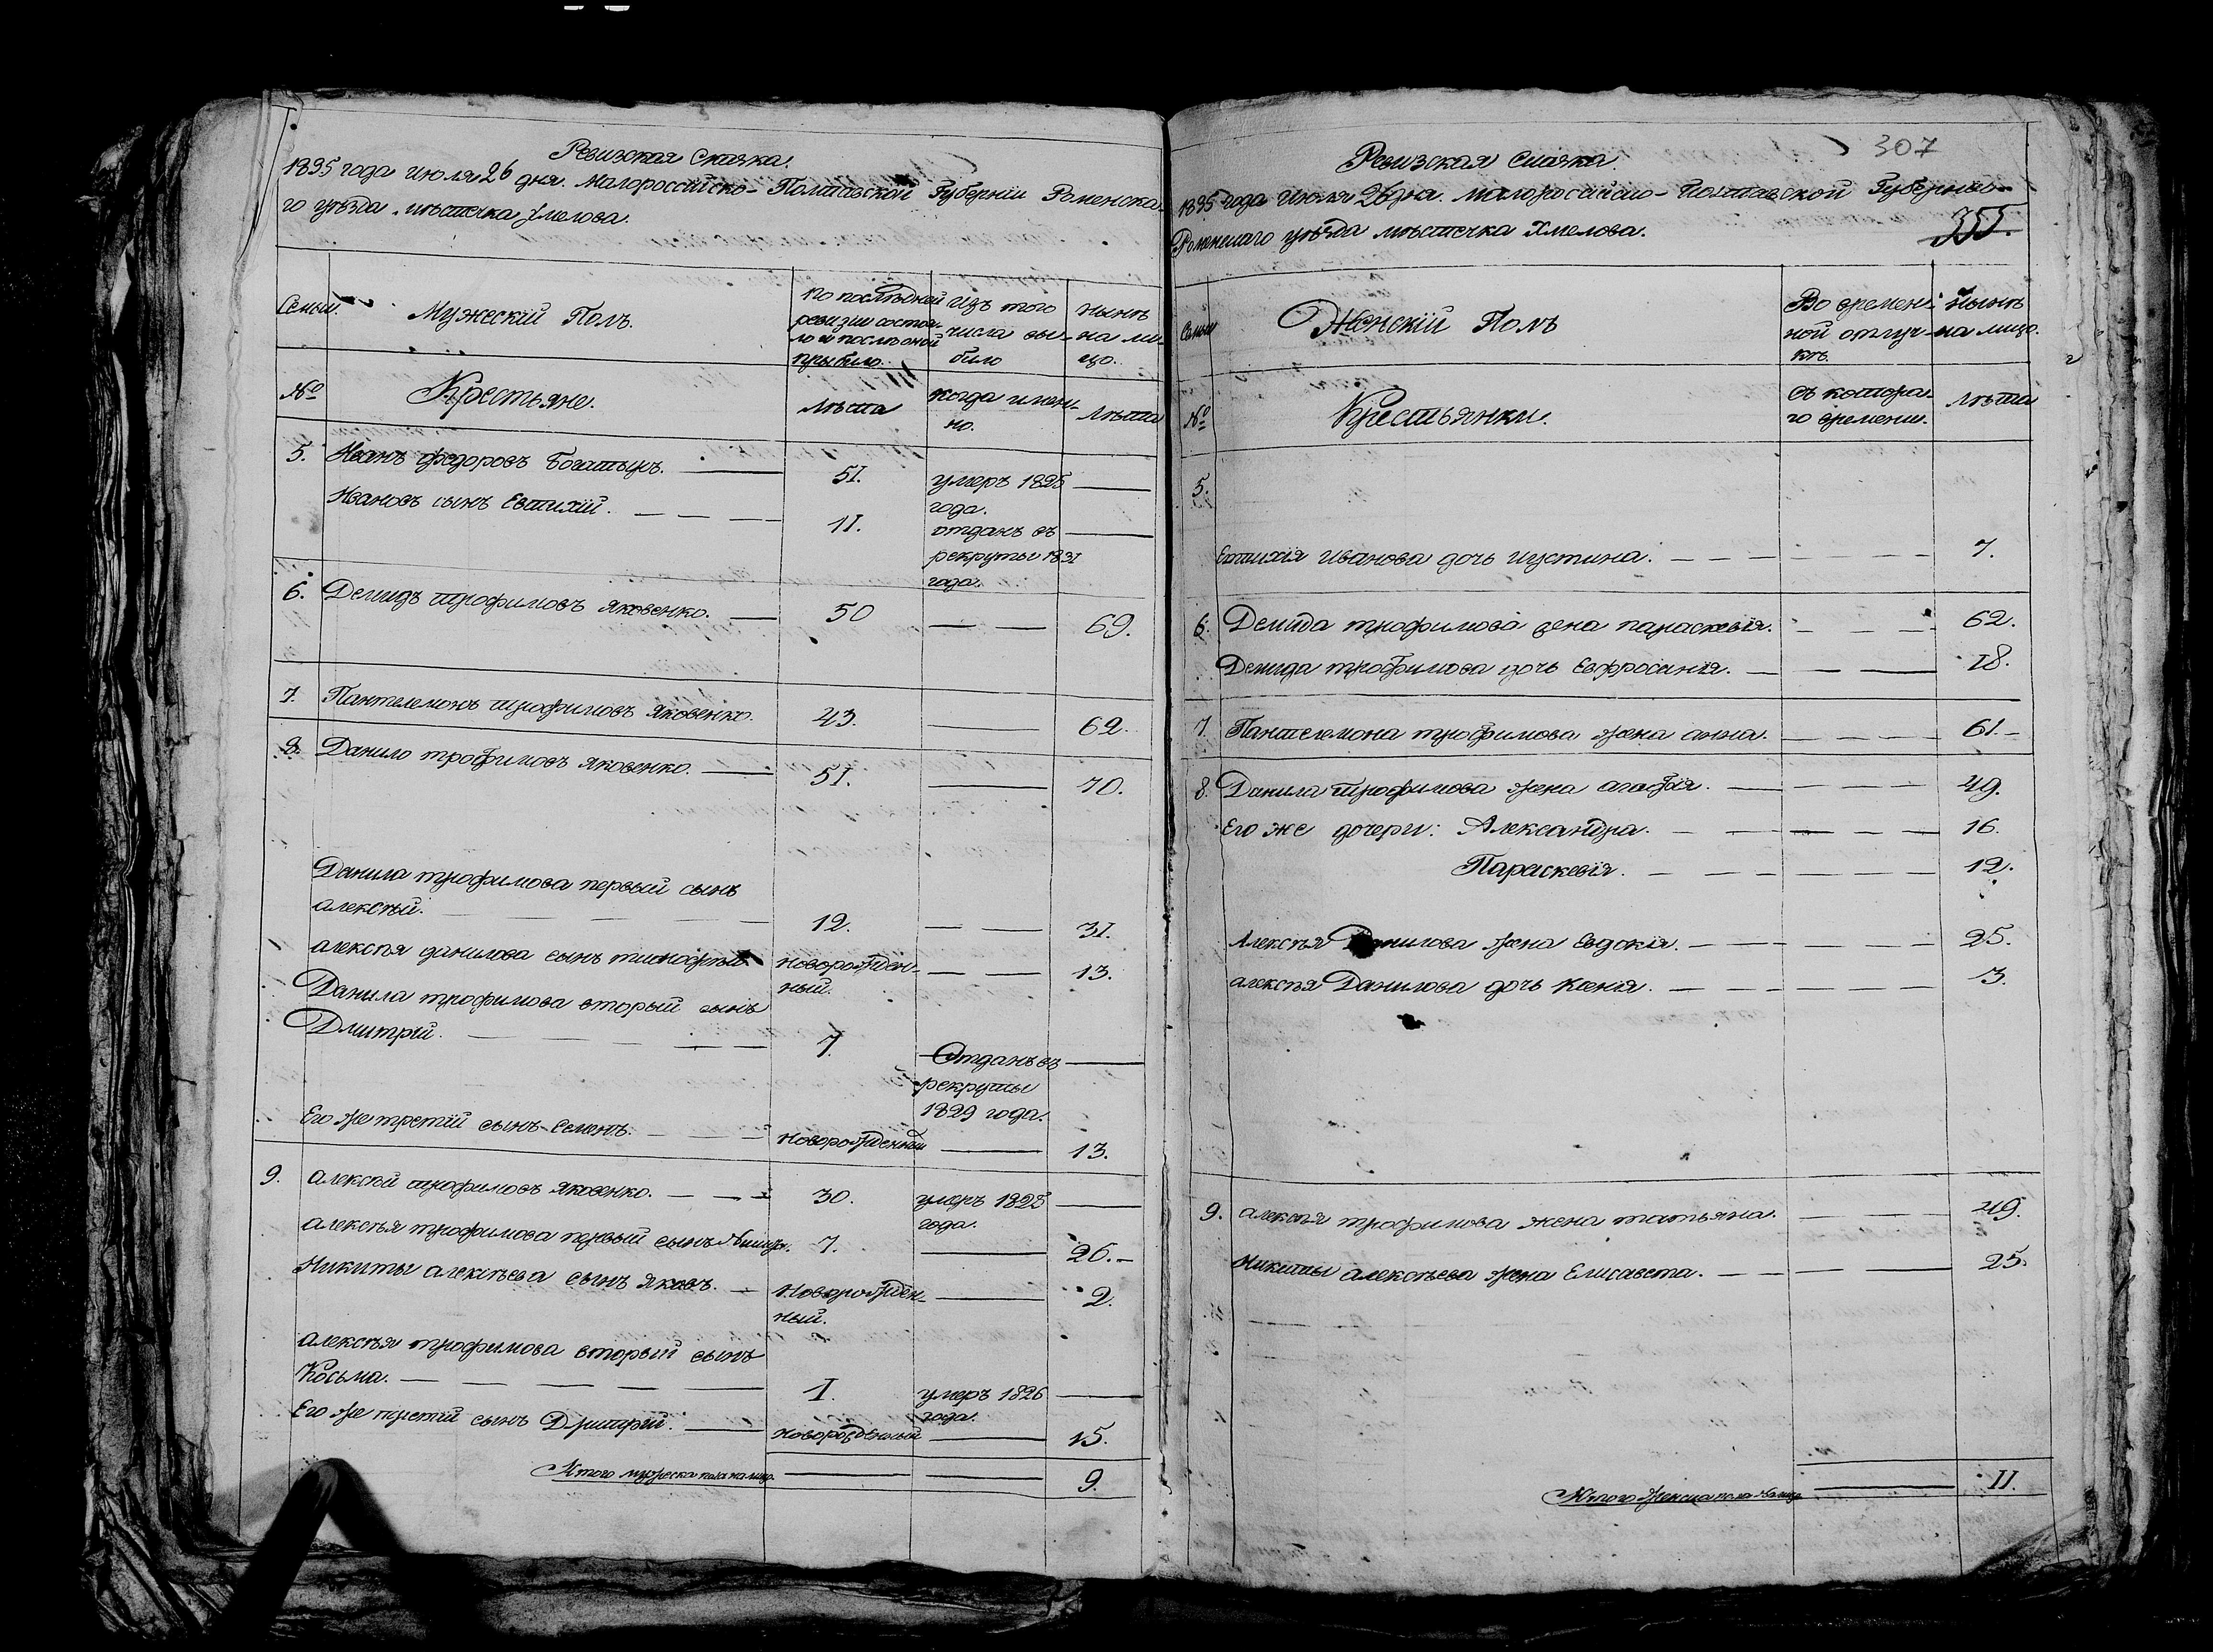 Ревизская Сказка.
1835 года июля 26 дня. Малороссийско-Полтавской Губернии Роменска-
го уѣзда мѣстечка Хмелова.
Семьи.
Мужеский Полъ.
По послѣдней
ревизии состоя-
ло и послѣ оной
прибыло.
Изъ того
числа вы-
было
Нынѣ
на ли-
цо.
№
Крестьяне.
Лѣта
когда имен-
но.
Лѣта
5. Иванъ федоровъ Богатырь. 51. умеръ 1825
года.
Ивановъ сынъ Евтихій. 11. отданъ въ
рекруты 1831
года.
6. Демидъ трофимовъ яковенко. 50 69.
7. Пантелемонъ трофимовъ яковенко. 43. 62.
8. Данило трофимовъ яковенко. 51. 70.
Данила трофимова первый сынъ
алексѣй. 12. 31.
алексѣя данилова сынъ тимофей новорожден-
ный. 13.
Данила трофимова вторый сынъ
Дмитрий. 7. Отданъ въ
рекруты
1829 года.
Его же третій сынъ Семенъ. новорожденный 13.
9. алексѣй трофимовъ яковенко. 30. умеръ 1828
года.
алексѣя трофимова первый сынъ Никита. 7. 26.
Никиты алексѣева сынъ яковъ. Новорожден-
ный. 2.
алексѣя трофимова вторый сынъ
Косьма. 1. умеръ 1826
года.
Его же третій сынъ Дмитрий. новорожденный 15.
Итого мужеска пола налицо. 9.
307
Ревизская Сказка.
1835 года Июля 26 дня. малоросийско-Полтавской Губернии
Роменскаго уѣзда мѣстечка Хмелова.
355.
Семьи
Женскій Полъ
Во времен-
ной отлуч-
кѣ.
Нынѣ
на лицо.
№
Крестьянки.
съ котора-
го времени.
Лѣта
5.
Евтихія Иванова дочь иустина. 7.
6. Демида трофимова жена параскевія. 62.
Демида трофимова дочь Евфросинія. 18.
7. Пантелемона трофимова жена анна. 61.
8. Данила трофимова жена агафія. 49.
Его же дочери: Александра. 16.
Параскевія. 12.
Алексѣя Данилова жена Евдокія. 25.
алексѣя Данилова дочь Ксенія. 3.
9. алексѣя трофимова жена татьяна. 49.
Никиты алексѣева жена Елисавета. 25.
Итого женска пола налицо 11.